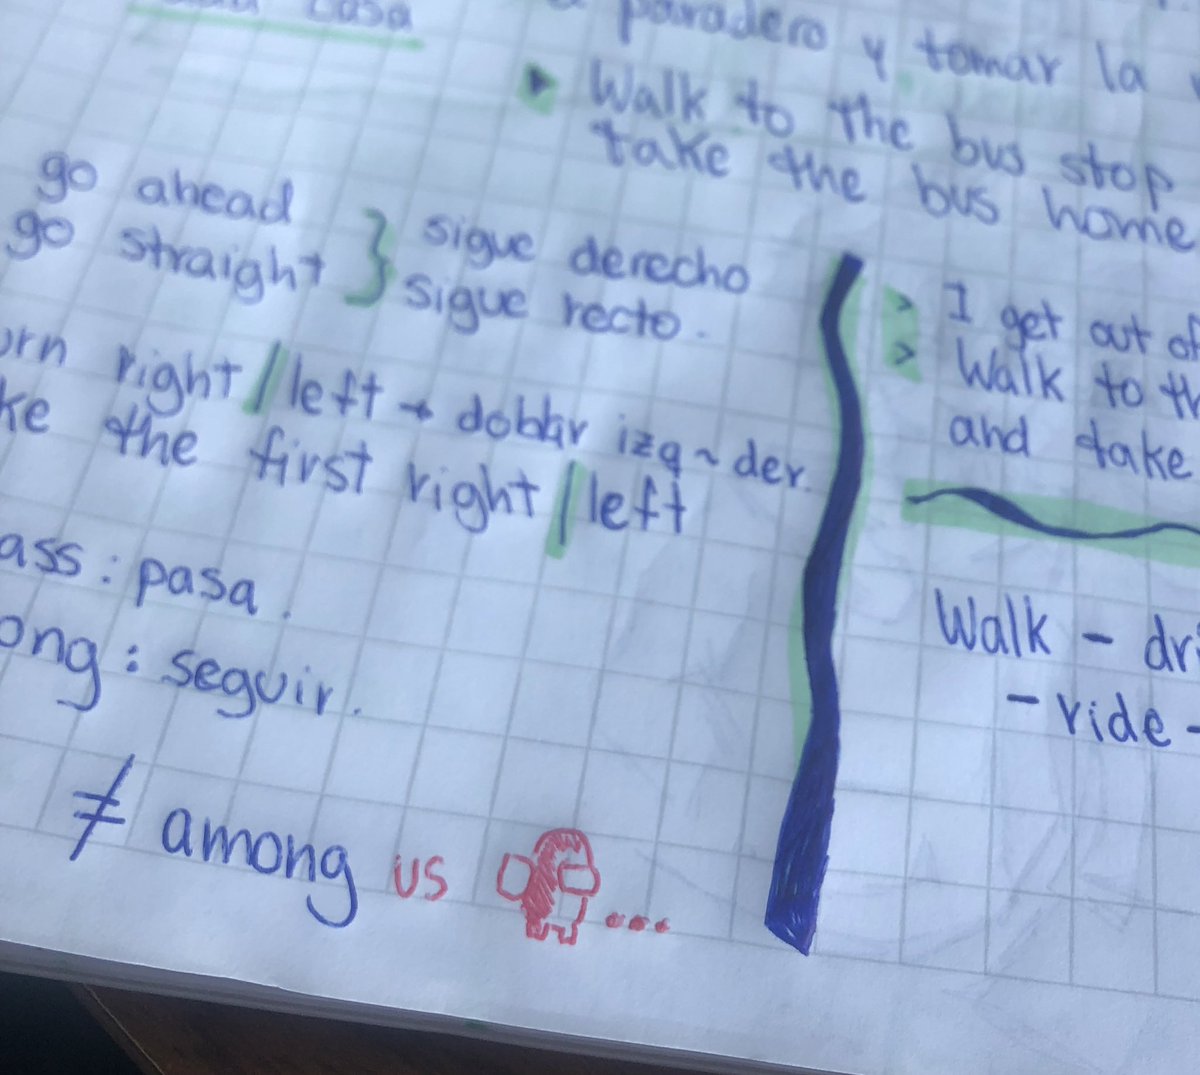 casa
paradero y tomar la
Walk to the bus stop
take the bus home
go ahead
go straight } sigue derecho
sigue recto.
orn right/left → doblar izq ~ der.
ke the first right/left
ass: pasa.
ong: seguir.
≠ among us ...
> I get out of
> Walk to th
and take
Walk - dri
- ride -